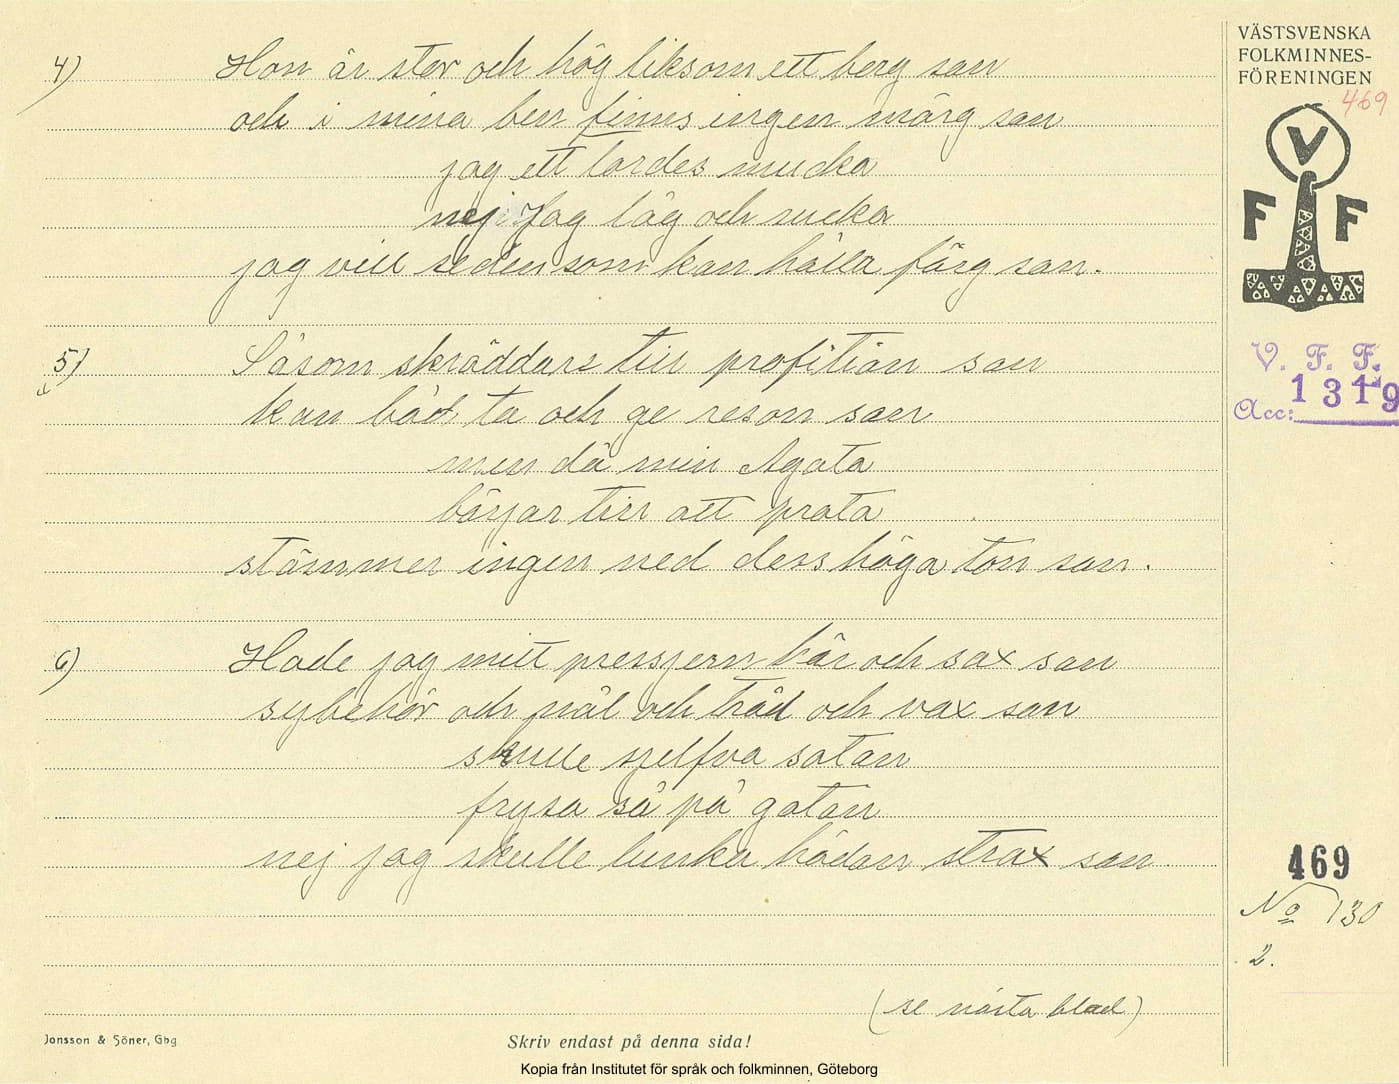 VÄSTSVENSKA
FOLKMINNES-
FÖRENINGEN
469
V
F F
V. F. F.
Acc: 1319
4) Hon är stor och hög liksom ett berg san
och i mina ben finns ingen märg san
jag ett tordes mucka
nej Jag låg och sucka
jag vill seden som kan hålla färg san.
5) Såsom skräddare till profition san
kan båd ta och ge reson san
men då min Agata
börjar till att prata
stämmer ingen ned dess höga ton san.
6) Hade jag mitt pressjern här och sax san
sybehör och nål och tråd och vax san
skulle sjelfva satan
frysa så på gatan
nej jag skulle lunka hädan strax san
469
No 130
2.
(se nästa blad)
Jonsson & Söner, Gbg
Skriv endast på denna sida!
Kopia från Institutet för språk och folkminnen, Göteborg